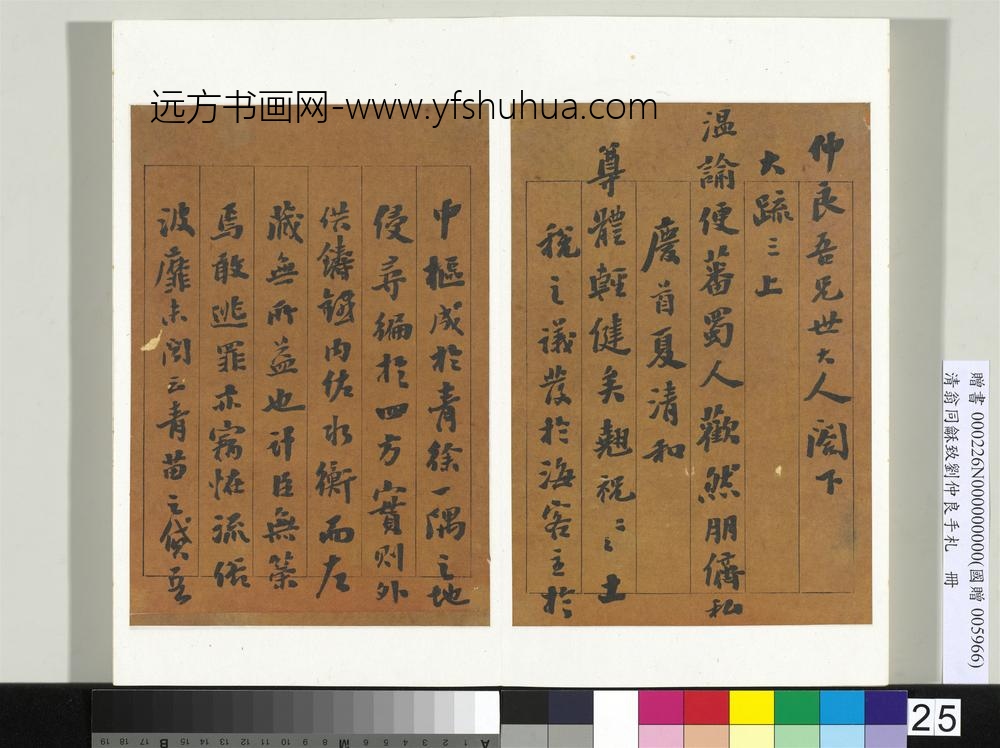 远方书画网-www.yfshuhua.com
仲良吾兄世大人阁下
大疏三上
温諭便蕃蜀人歡然朋儕私
慶首夏清和
尊體輕健矣翹祝〻土
稅之議發於海客主於
中樞成於青徐一隅之地
侵尋徧於四方實則外
供鑄錢内佐水衡而左
藏無所益也計臣無策
焉敢逃罪亦竊恠流俗
波靡未聞云青苗之貸吾
贈書 000226N000000000(國贈 005966)
清翁同龢致劉仲良手札 冊
25